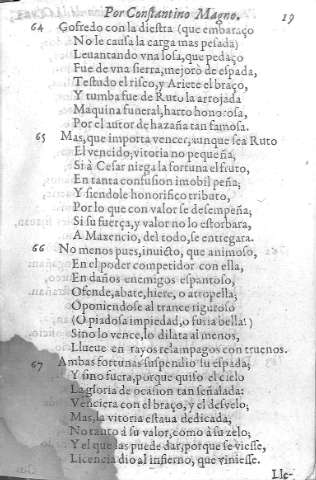 Por Constantino Magno. 19
64 Gofredo con la diestra (que embaraço
No le causa la carga mas pesada)
Leuantando vna losa, que pedaço
Fue de vna sierra, mejorò de espada,
Testudo el risco, y Ariete el braço,
Y tumba fue de Ruto la arrojada
Maquina funeral, harto honrosa,
Por el autor de hazaña tan famosa.
65 Mas, que importa vencer, aunque sea Ruto
El vencido, vitoria no pequeña,
Si à Cesar niega la fortuna el fruto,
En tanta confusion imobil peña;
Y siendole honorifico tributo,
Por lo que con valor se desempeña;
Si su fuerça, y valor no lo estorbara,
A Maxencio, del todo, se entregara.
66 No menos pues, inuicto, que animoso,
En el poder competidor con ella,
En daños enemigos espantoso,
Ofende, abate, hiere, o atropella;
Oponiendose al trance riguroso
(O piadosa impiedad, o furia bella!)
Sino lo vence, lo dilata al menos,
Llueue en rayos relampagos con truenos.
67 Ambas fortunas suspendio su espada;
Y sino fuera, porque quiso el cielo
La gloria de ocasion tan señalada:
Venciera con el braço, y el desvelo;
Mas, la vitoria estaua dedicada,
No tanto à su valor, como à su zelo;
Y el que las puede dar, porque se viesse,
Licencia dio al infierno, que viniesse.
Lle-